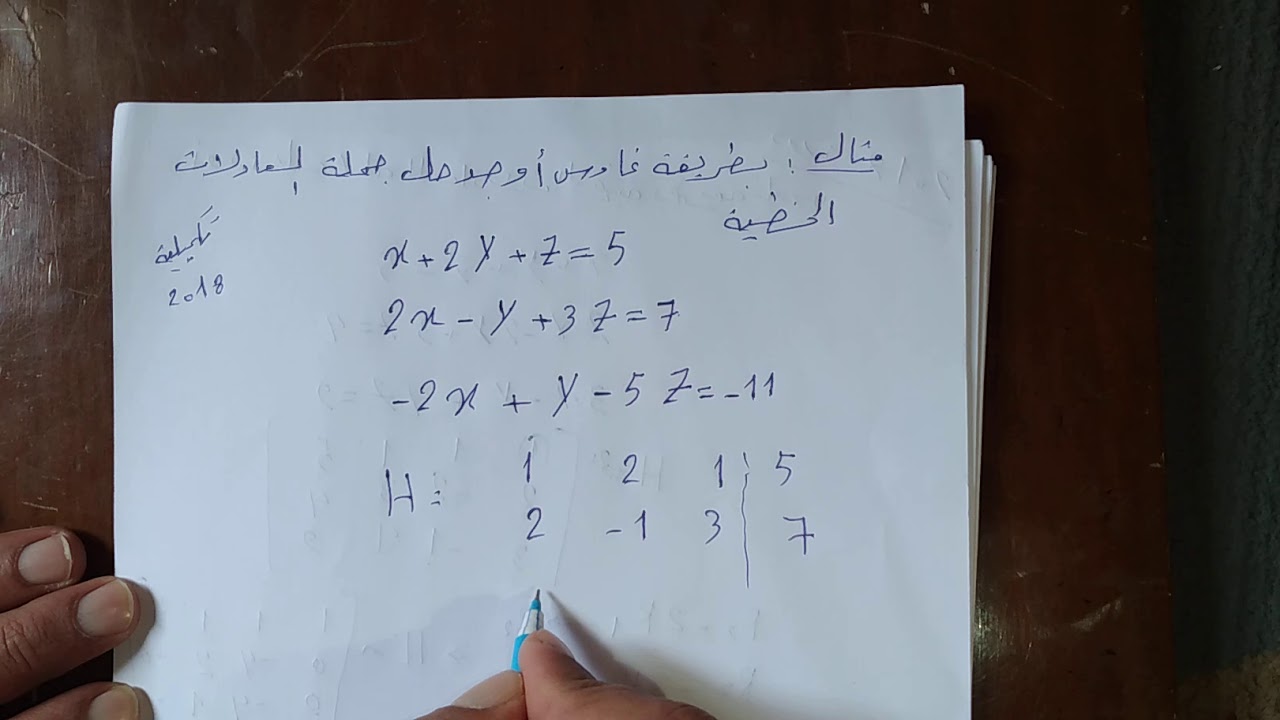 مثال : بطريقة غاوس أوجد حل جملة المعادلات
الخطية
تكميلية
2018
x + 2y + z = 5
2x - y + 3z = 7
-2x + y - 5z = -11
H = 1 2 1 | 5
2 -1 3 | 7